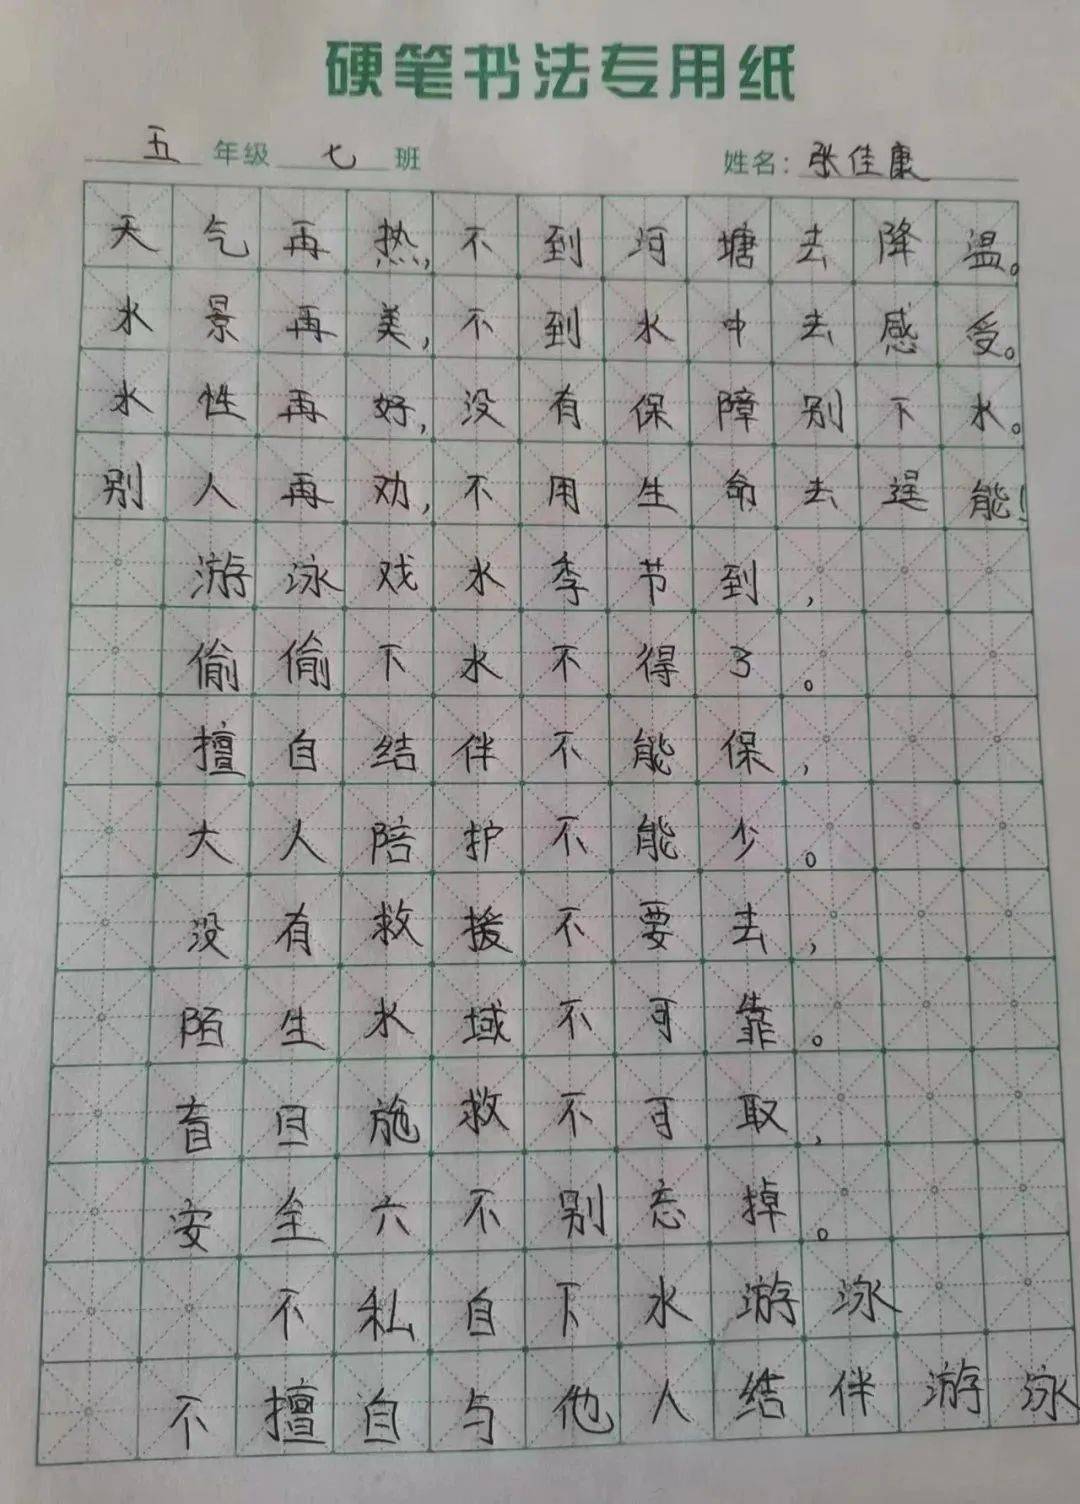 硬笔书法专用纸
五年级七班 姓名：张佳康
天气再热，不到河塘去降温。
水景再美，不到水中去感受。
水性再好，没有保障别下水。
别人再劝，不用生命去逞能！
游泳戏水季节到，
偷偷下水不得了。
擅自结伴不能保，
大人陪护不能少。
没有救援不要去，
陌生水域不可靠。
盲目施救不可取，
安全六不别忘掉。
不私自下水游泳
不擅自与他人结伴游泳